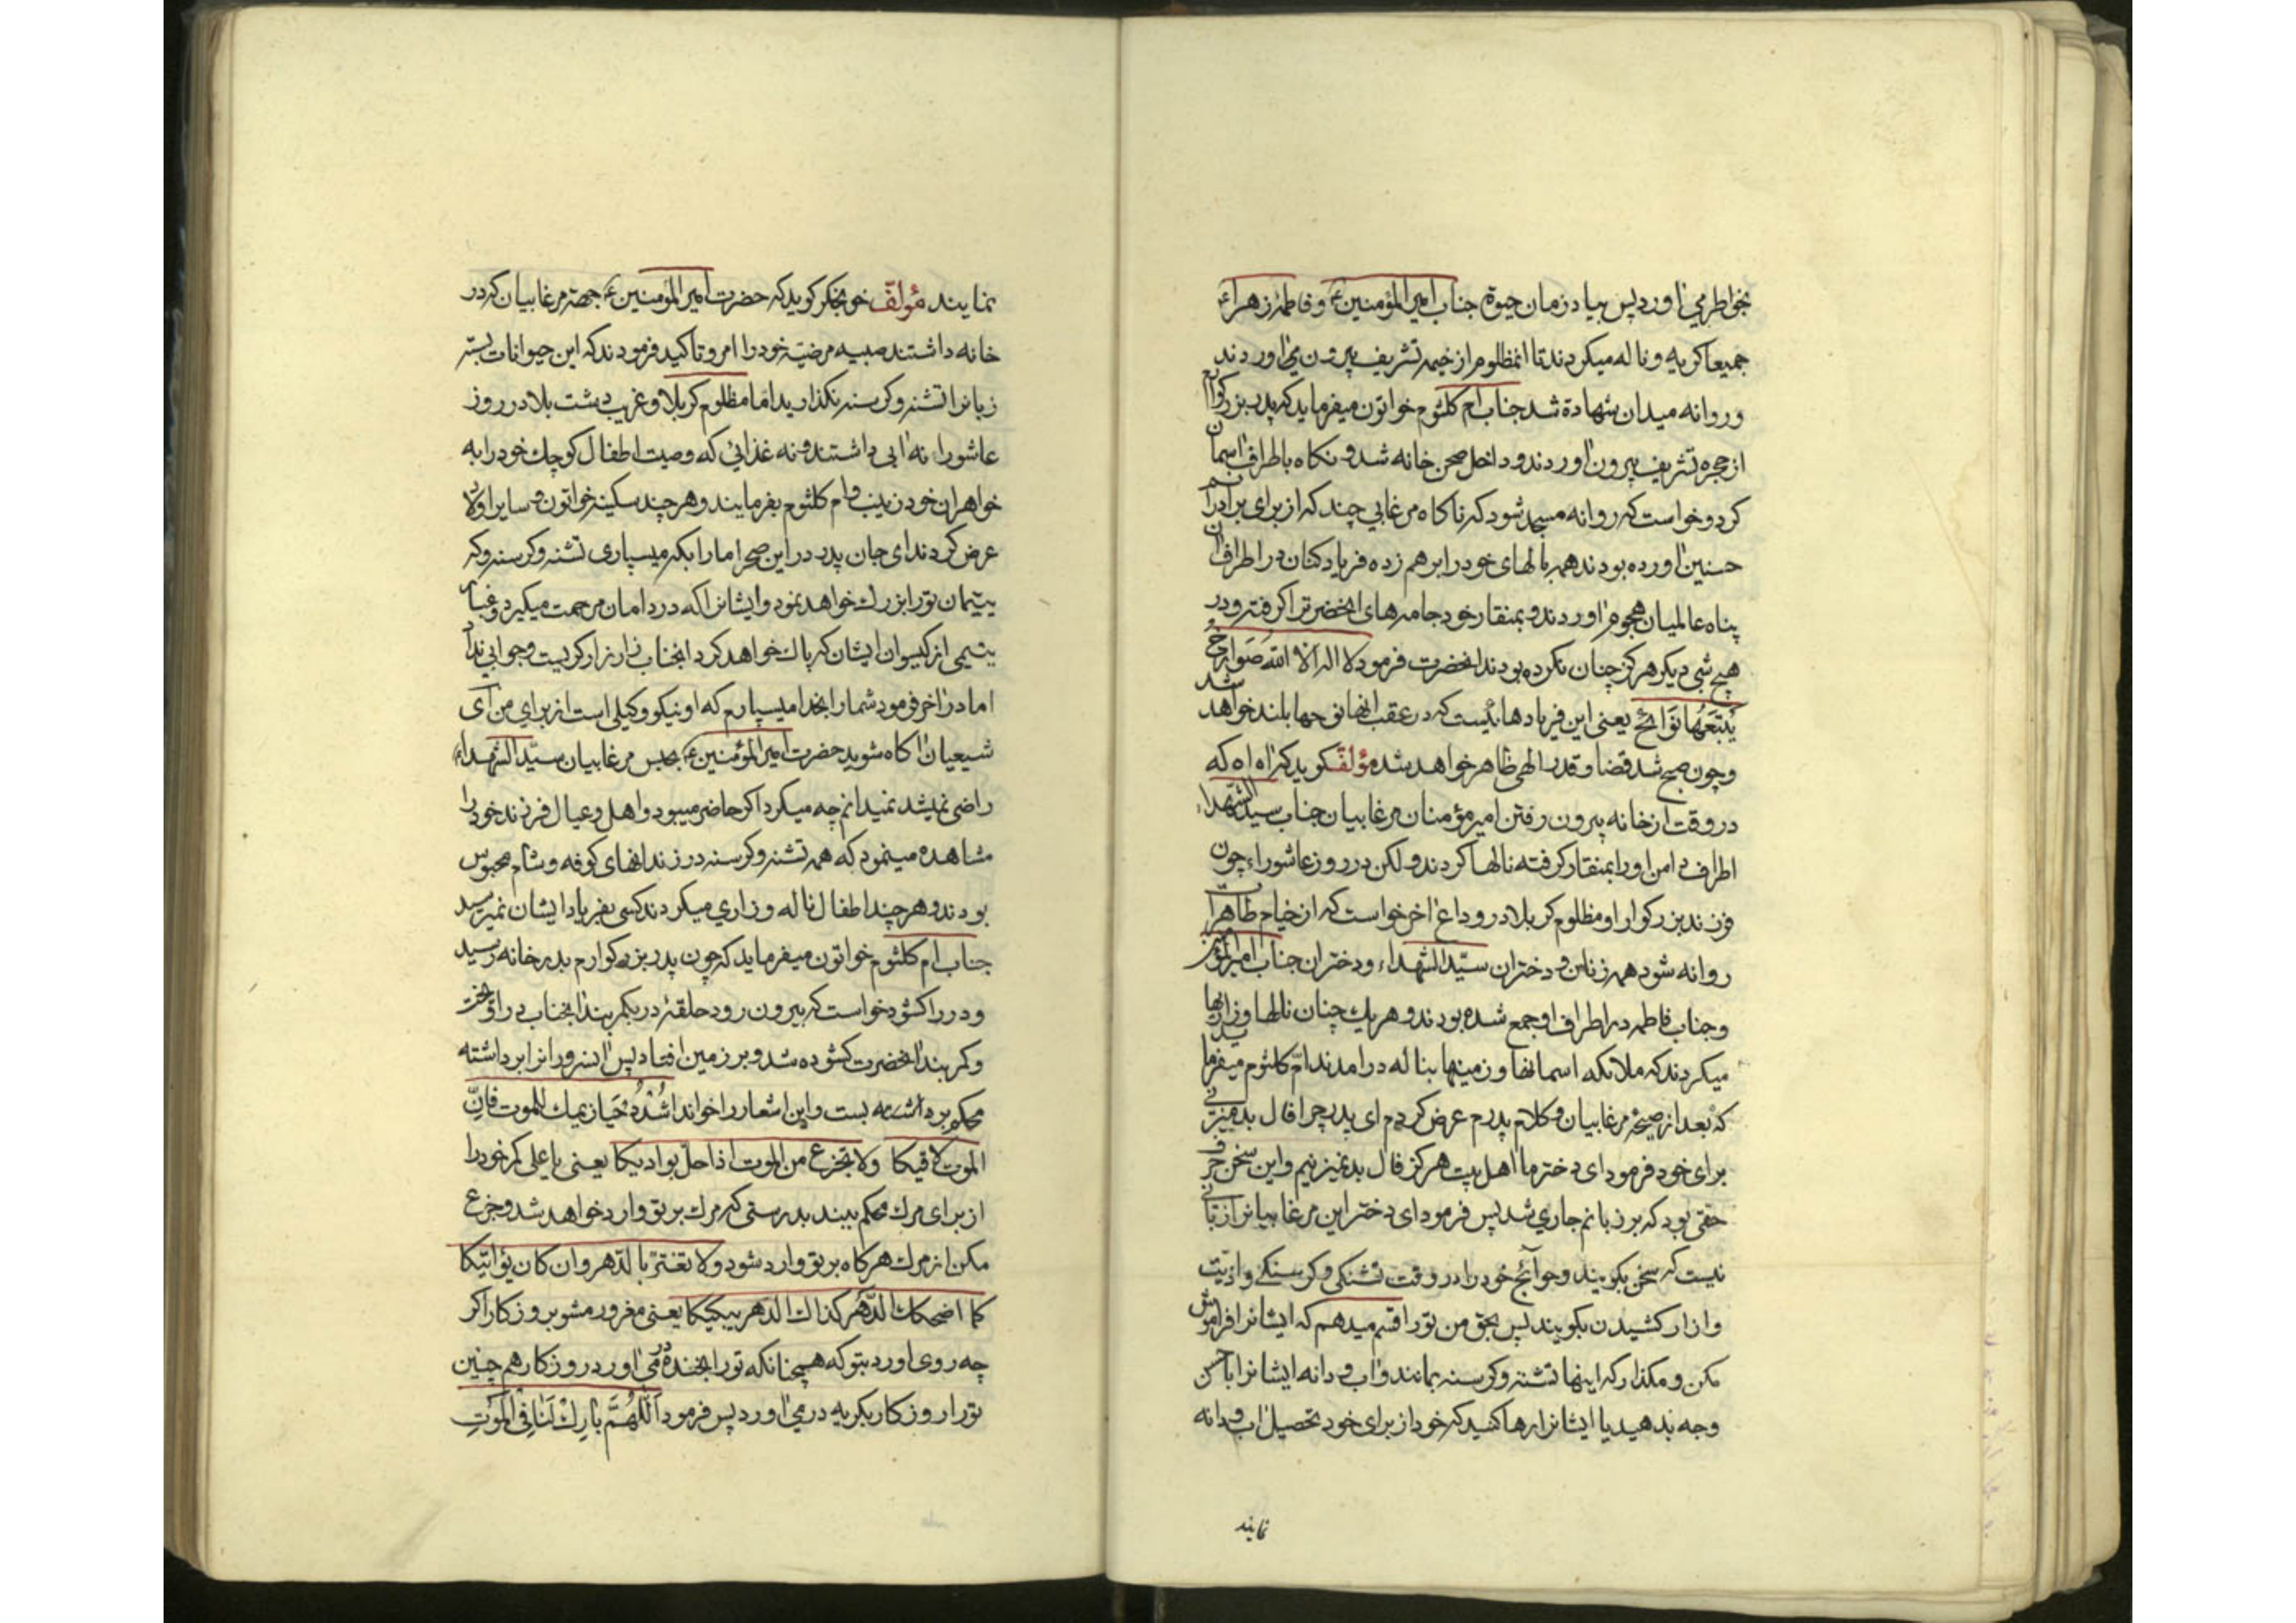 بخواطر می اورد پس بیا در زمان حیوة جناب امیر المؤمنین ع و فاطمه زهراء ع
جمیعا کریه و ناله میکردند تا انمظلوم از خیمه تشریف بیرون می اوردند
و روانه میدان شهادة شد جناب ام کلثوم خواتون میفرماید که پدر بزرکوارم
از حجره تشریف بیرون اوردند و داخل صحن خانه شد و نکاه باطراف اسمان
کرد و خواست که روانه مسجد شود که ناکاه مرغابی چند که از برای برادرانم
حسنین اورده بودند همه بالهای خود را برهم زده فریاد کنان در اطراف ان
پناه عالمیان هجوم اوردند و بمنقار خود جامه های انحضرترا کرفته و در
هیچ شبی دیکر هرکز چنان نکرده بودند انحضرت فرمود لا اله الا الله صَوارِخُ
یَتبَعُها نَوَائح یعنی این فریادهائیست که در عقب انها نوحها بلند خواهد شد
و چون صبح شد قضا و قدر الهی ظاهر خواهد شد مؤلف کوید که اه اه که
در وقت از خانه بیرون رفتن امیر مؤمنان مرغابیان جناب سید الشهداء
اطراف دامن او را بمنقار کرفته نالها کردند و لکن در روز عاشوراء چون
فرزند بزرکوار او مظلوم کربلا در وداع اخر خواست که از خیام طاهرات
روانه شود همه زنان و دختران سیّد الشهداء و دختران جناب امیر المؤمنین
و جناب فاطمه در اطراف او جمع شده بودند و هریک چنان نالها و زاریها
میکردند که ملائکه اسمانها و زمینها بناله در امدند ام کلثوم میفرماید
که بعد از صیحه مرغابیان و کلام پدرم عرض کردم ای پدر چرا فال بد میزنی
برای خود فرمود ای دختر ما اهل بیت هرکز فال بد نمیزنیم و این سخن حرف
حقی بود که بر زبانم جاری شد پس فرمود ای دختر این مرغابیانرا زبانی
نیست که سخن بکویند و حوائج خود را در وقت تشنکی و کرسنکی و اذیت
و ازار کشیدن بکویند پس بحق من تو را قسم میدهم که ایشانرا فراموش
مکن و مکذار که اینها تشنه و کرسنه بمانند و اب و دانه ایشانرا باحسن
وجه بدهید یا ایشانرا رها کنید که خود از برای خود تحصیل اب و دانه
نمایند
نمایند مؤلف خونجکر کوید که حضرت امیر المؤمنین ع جهة مرغابیان که در
خانه داشتند صبیه مرضیه خود را امر و تاکید فرمودند که این حیوانات بسته
زبانرا تشنه و کرسنه نکذارید اما مظلوم کربلا و غریب دشت بلا در روز
عاشورا نه ابی داشتند و نه غذائی که وصیت اطفال کوچک خود را به
خواهران خود زینب و ام کلثوم بفرمایند و هرچند سکینه خواتون و سایر اولاد
عرض کردند ای جان پدر در این صحرا ما را بکه میسپاری تشنه و کرسنه و که
یتیمان تو را بزرک خواهد نمود و ایشانرا که در دامان مرحمت میکیرد و غبار
یتیمی از کیسوان ایشان که پاک خواهد کرد انجناب زار زار کریست و جوابی نداد
اما در اخر فرمود شما را بخدا میسپارم که او نیکو وکیلی است از برای من ای
شیعیان اکاه شوید حضرت امیر المؤمنین ع بحبس مرغابیان سید الشهداء
راضی نمیشد نمیدانم چه میکرد اکر حاضر میبود و اهل و عیال فرزند خود را
مشاهده مینمود که همه تشنه و کرسنه در زندانهای کوفه و شام محبوس
بودند و هرچند اطفال ناله و زاری میکردند کسی بفریاد ایشان نمیرسید
جناب ام کلثوم خواتون میفرماید که چون پدر بزرکوارم بدر خانه رسید
و در را کشود خواست که بیرون رود حلقۀ در بکمربند انجناب در اویخت
و کمربند انحضرت کشوده شد و بر زمین افتاد پس انسرور انرا برداشته
محکم بر بست و این اشعار را خواند اُشْدُدْ حَیَازیمک للموت فانّ
الموت لاقیکا ولا تجزع من الموت اذا حلّ بوادیکا یعنی یا علی کمر خود را
از برای مرک محکم ببند بدرستی که مرک بر تو وارد خواهد شد و جزع
مکن از مرک هرکاه بر تو وارد شود ولا تغترّ بالدّهر وان کان یؤاتیکا
کما اضحکک الدّهر کذاک الدهر یبکیکا یعنی مغرور مشو بروزکار اکر
چه روی اورد بتو که همچنانکه تو را بخنده در می اورد روزکار هم چنین
تو را روزکار بکریه در می اورد پس فرمود اَللّهُمَّ بارِکْ لَنا فِی الْمَوْتِ